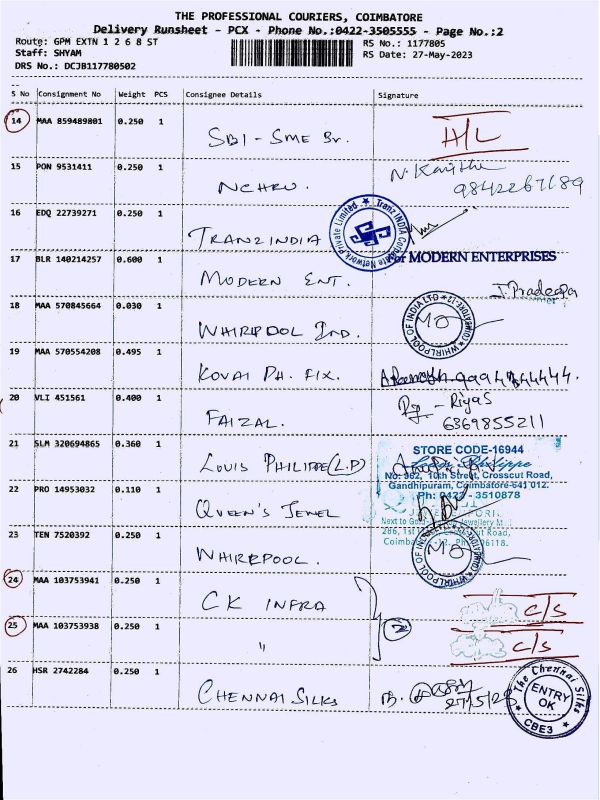 THE PROFESSIONAL COURIERS, COIMBATORE
Delivery Runsheet - PCX - Phone No.:0422-3505555 - Page No.:2
Route: GPM EXTN 1 2 6 8 ST
RS No.: 1177805
Staff: SHYAM
RS Date: 27-May-2023
DRS No.: DCJB117780502
S No Consignment No Weight PCS Consignee Details Signature
14 MAA 859489801 0.250 1
SBI - SME Br. H/L
15 PON 9531411 0.250 1
NEHRU.
9842267189
16 EDQ 22739271 0.250 1
TRANZINDIA
Tranz INDIA Corporate Network Private Limited
17 BLR 140214257 0.600 1
For MODERN ENTERPRISES
MODERN ENT.
J. Pradeepa
18 MAA 570845664 0.030 1
WHIRLPOOL IND.
WHIRLPOOL OF INDIA LTD
19 MAA 570554208 0.495 1
KOVAI PH. FIX.
20 VLI 451561 0.400 1
FAIZAL. Riyas
6369855211
21 SLM 320694865 0.360 1
STORE CODE-16944
LOUIS PHILIPPE (L.P)
No: 962, 10th Street, Crosscut Road,
Gandhipuram, Coimbatore-641 012.
Ph: 0422 - 3510878
22 PRO 14953032 0.110 1
QUEEN'S JEWEL
23 TEN 7520392 0.250 1
WHIRLPOOL.
24 MAA 103753941 0.250 1
CK INFRA C/S
25 MAA 103753938 0.250 1
" 2 C/S
26 HSR 2742284 0.250 1
CHENNAI SILKS
27/5/23
The Chennai Silks
ENTRY
OK
CBE3